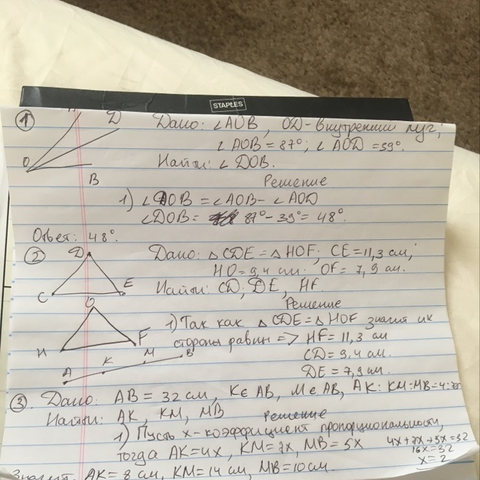 STAPLES
① Дано: ∠AOB, OD - внутренний луч,
∠AOB = 87°; ∠AOD = 39°.
Найти: ∠DOB.
D
O
B
Решение
1) ∠DOB = ∠AOB - ∠AOD
∠DOB = 87° - 39° = 48°.
Ответ: 48°.
② Дано: △CDE = △HOF; CE = 11,3 см;
HO = 9,4 см. OF = 7,9 см.
Найти: CD, DE, HF.
D
C E
O
H F
Решение
1) Так как △CDE = △HOF значит их
стороны равны => HF = 11,3 см
CD = 9,4 см.
DE = 7,9 см.
A K M B
③ Дано: AB = 32 см, K∈AB, M∈AB, AK:KM:MB = 4:7:5
Найти: AK, KM, MB
Решение
1) Пусть x - коэффициент пропорциональности,
тогда AK = 4x, KM = 7x, MB = 5x
4x + 7x + 5x = 32
16x = 32
x = 2
Значит, AK = 8 см, KM = 14 см, MB = 10 см.